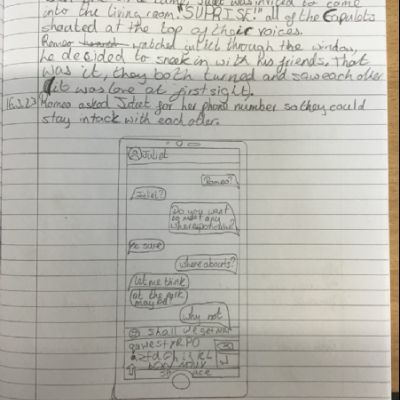 Juliet was invited to come
into the living room. "SUPRISE!" all of the Capulets
shouted at the top of their voices.
Romeo watched through the window,
he decided to sneek in with his friends. That
was it, they both turned and saw each other
(it was love at first sight).
16.3.23 Romeo asked Juliet for her phone number so they could
stay intack with each other.
Juliet
Romeo?
Juliet?
Do you want
to meet any
where
sure
where abouts?
let me think
at the park
maybe
why not
shall we get